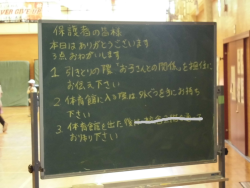 保護者の皆様
本日はありがとうございます
3点おねがいします
1 引きとりの際"お子さんとの関係"を担任に
お伝え下さい
2 体育館に入る際は外ぐつを手にお持ち
下さい
3 体育館を出た後は
お帰り下さい